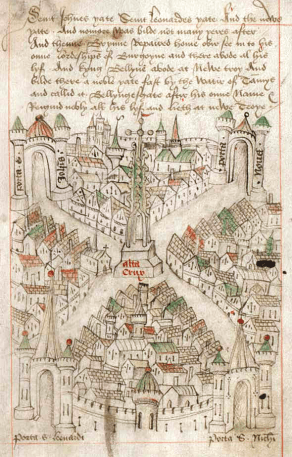 Seint Johnes yate Seint leonardes yate And the newe
yate And nomoer Was bilde not many yeres after
And thenne Brynne Repaired home over See in to his
owne lordships of Burgoyne and there abode al his
lyf And kyng Bellyne abode at Newe troy And
bilde there a noble yate fast by the Watir of Tamys
and callid it Bellynesgate after his owne Name
Regnid nobly all his lyf and lieth at newe Troye
porta S. Joh̅is
porta Noua
alta
Crux
Porta S leonardi
Porta S. Nichi